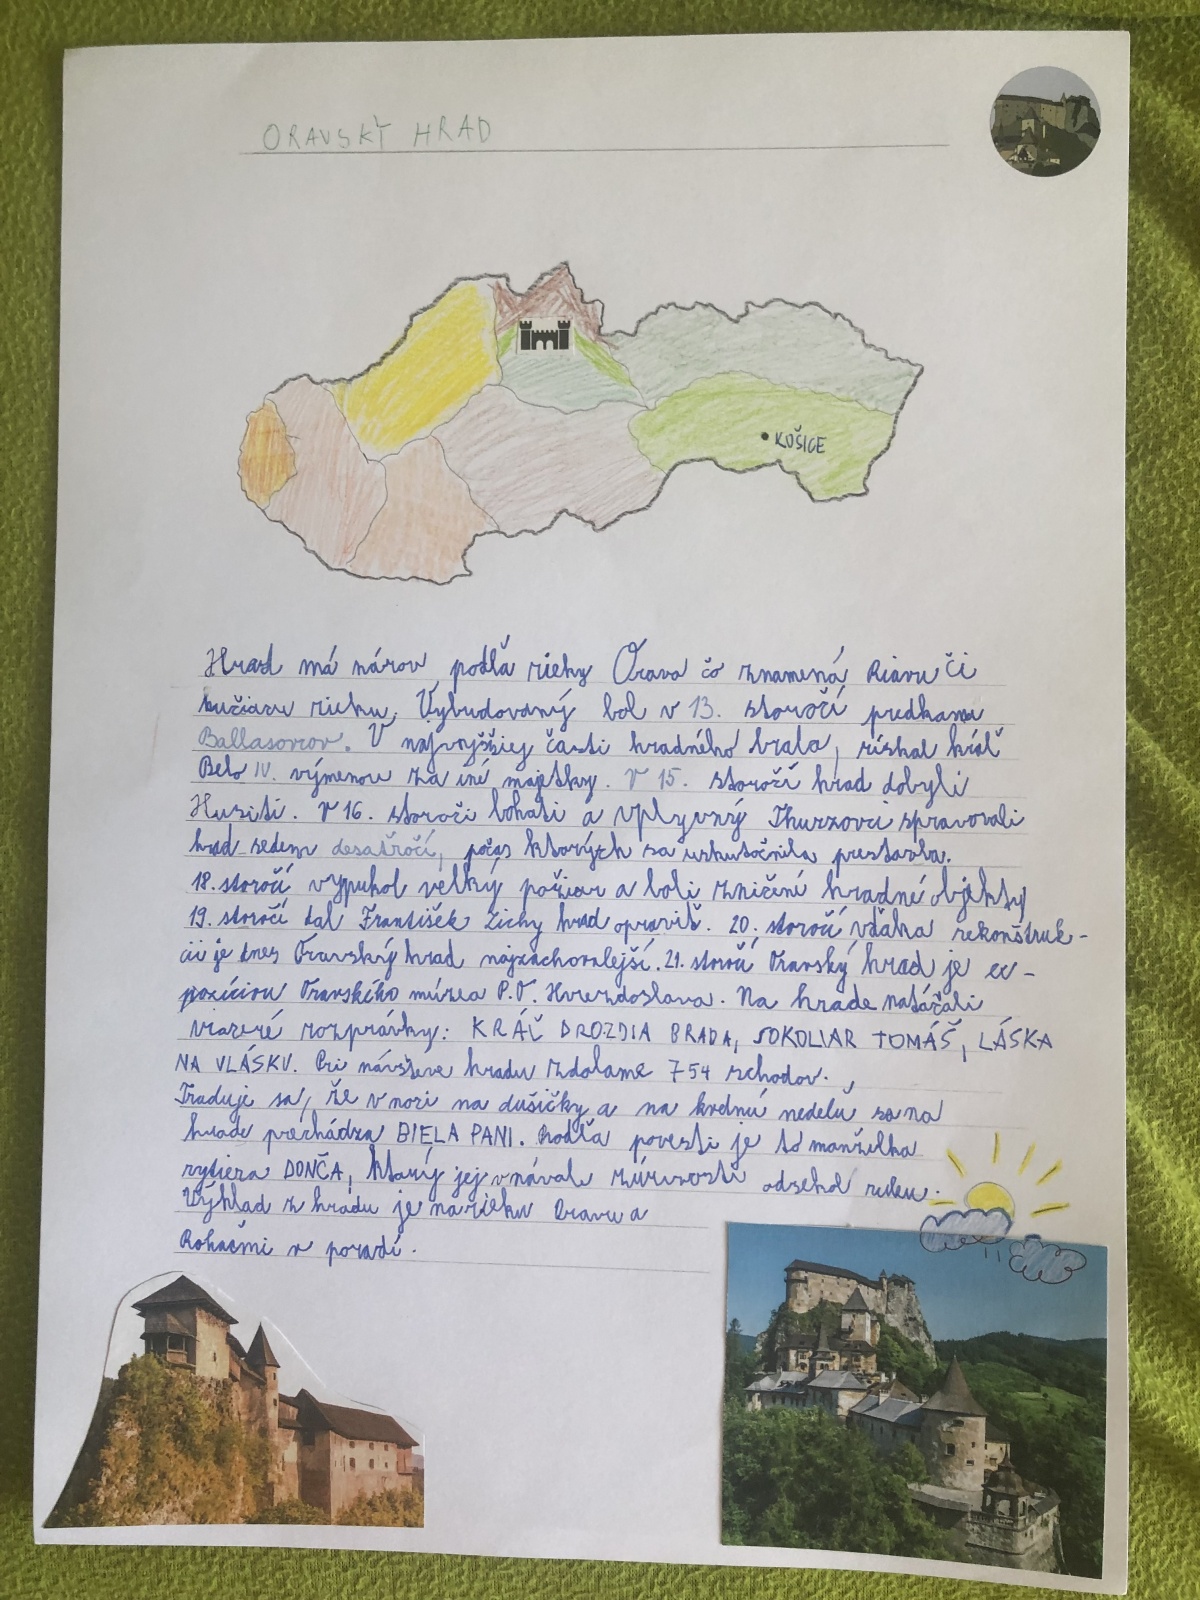 ORAVSKÝ HRAD
KOŠICE
Hrad má názov podľa rieky Orava čo znamená Riavu či
bučiacu rieku. Vybudovaný bol v 13. storočí predkami
Ballasovcov. V najvyššiej časti hradného brala, získal kráľ
Belo IV. výmenou za iné majetky. V 15. storočí hrad dobyli
Husiti. V 16. storočí bohatí a vplyvný Thurzovci spravovali
hrad sedem desaťročí, počas ktorých sa uskutočnila prestavba.
18. storočí vypukol velký požiar a boli zničení hradné objekty
19. storočí dal František Zichy hrad opraviť. 20. storočí vďaka rekonštruk-
cii je dnes Oravský hrad najzachovalejší. 21. storočí Oravský hrad je ex-
pozíciou Oravského múzea P.O. Hviezdoslava. Na hrade natáčali
viaceré rozprávky: KRÁĽ DROZDIA BRADA, SOKOLIAR TOMÁŠ, LÁSKA
NA VLÁSKU. Pri návšteve hradu zdolame 754 schodov.
Traduje sa, že v noci na dušičky a na kvetnú nedeľu sa na
hrade prechádza BIELA PANI. Podľa povesti je to manželka
rytiera DONČA, ktorý jej v návale zúrivosti odsekol ruku.
Výhľad z hradu je na rieku Oravu a
Roháčmi v pozadí.